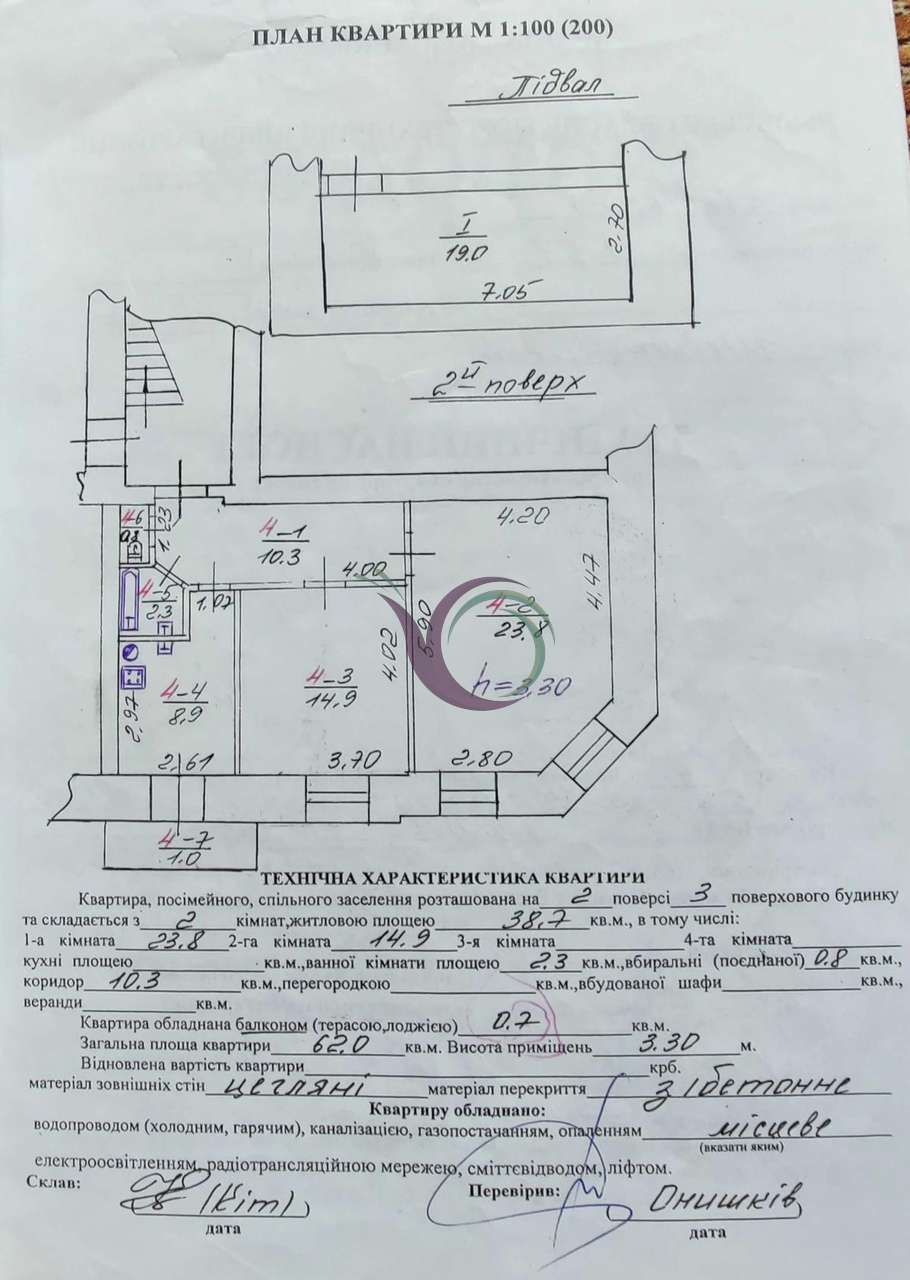 ПЛАН КВАРТИРИ М 1:100 (200)
Підвал
I
19.0
2.70
7.05
2й поверх
4-6
0.8
1.23
4-1
10.3
4.00
4.20
4.47
4-5
2.3
1.07
4-2
23.8
5.90
4.02
h=3.30
4-3
14.9
4-4
8.9
2.97
2.61
3.70
2.80
4-7
1.0
ТЕХНІЧНА ХАРАКТЕРИСТИКА КВАРТИРИ
Квартира, посімейного, спільного заселення розташована на 2 поверсі 3 поверхового будинку
та складається з 2 кімнат,житловою площею 38,7 кв.м., в тому числі:
1-а кімната 23.8 2-га кімната 14.9 3-я кімната 4-та кімната
кухні площею кв.м.,ванної кімнати площею 2.3 кв.м.,вбиральні (поєднаної) 0.8 кв.м.,
коридор 10.3 кв.м.,перегородкою кв.м.,вбудованої шафи кв.м.,
веранди кв.м.
Квартира обладнана балконом (терасою,лоджією) 0.7 кв.м.
Загальна площа квартири 62.0 кв.м. Висота приміщень 3.30 м.
Відновлена вартість квартири крб.
матеріал зовнішніх стін цегляні матеріал перекриття з/бетонне
Квартиру обладнано:
водопроводом (холодним, гарячим), каналізацією, газопостачанням, опаленням місцеве
(вказати яким)
електроосвітленням, радіотрансляційною мережею, сміттєвідводом, ліфтом.
Склав: (Кіт) Перевірив: Онишків
дата дата